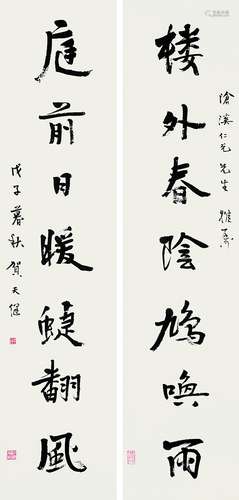 滄溟仁兄先生雅属
楼外春陰鳩喚雨
庭前日暖蜨翻風
戊子暮秋賀天健